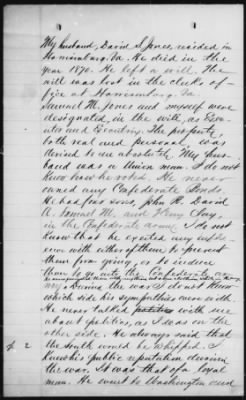 My husband, David S. Jones, resided in
Harrisonburg, Va. He died in the
year 1870. He left a will. The
will was lost in the clerk's of-
fice at Harrisonburg, Va.
Samuel M. Jones and myself were
designated, in the will, as Exe-
cutor and Executrix. The property,
both real and personal, was
devised to me absolute. My hus-
band was a Union man. I do not
know how he voted. He never
owned any Confederate bonds.
He had four sons, John R. David
A. Samuel M. and Henry Clay,
in the Confederate army. I do not
know that he exerted any influ-
ence with either of them, to prevent
them from going, or to induce
them to go into the Confederate
During the war I do not know
which side his sympathies were with.
He never talked politics with me
about politics, as I was on the
other side. He always said that
the South would be whipped. I
2
know his public reputation during
the war. It was that of a loyal
man. He went to Washington and